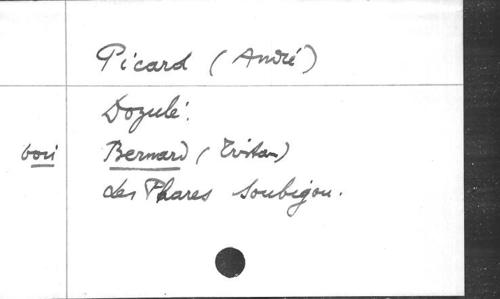 Picard (André)
Dozulé.
voir Bernard (Tristan)
Les Phares Soubigou.